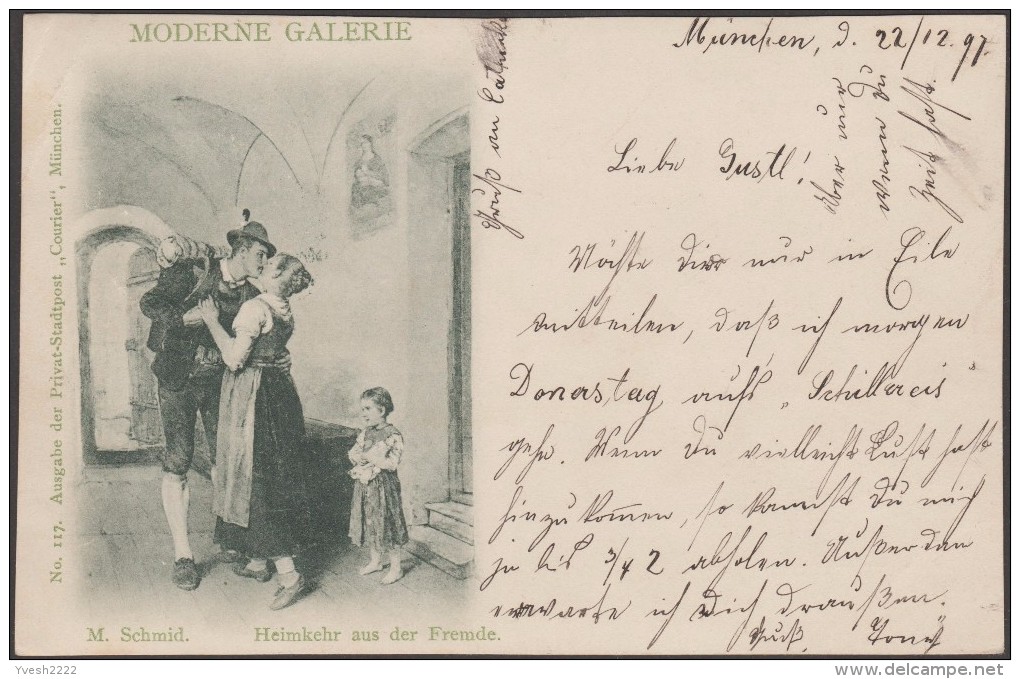 MODERNE GALERIE
No. 117. Ausgabe der Privat-Stadtpost „Courier", München.
M. Schmid. Heimkehr aus der Fremde.
München, d. 22/12. 97.
Liebe Gustl!
Möchte Dir nur in Eile
mitteilen, daß ich morgen
Donerstag aufs
gehe. Wenn Du vielleicht Lust hast
hinzukommen, so kannst Du mich
ja bis 3/4 2 abholen. Außerdem
erwarte ich Dich draußen.
Gruß Toni
Aber nur
wenn Du
Zeit hast.
Gruß an
Yvesh2222
www.delcampe.net